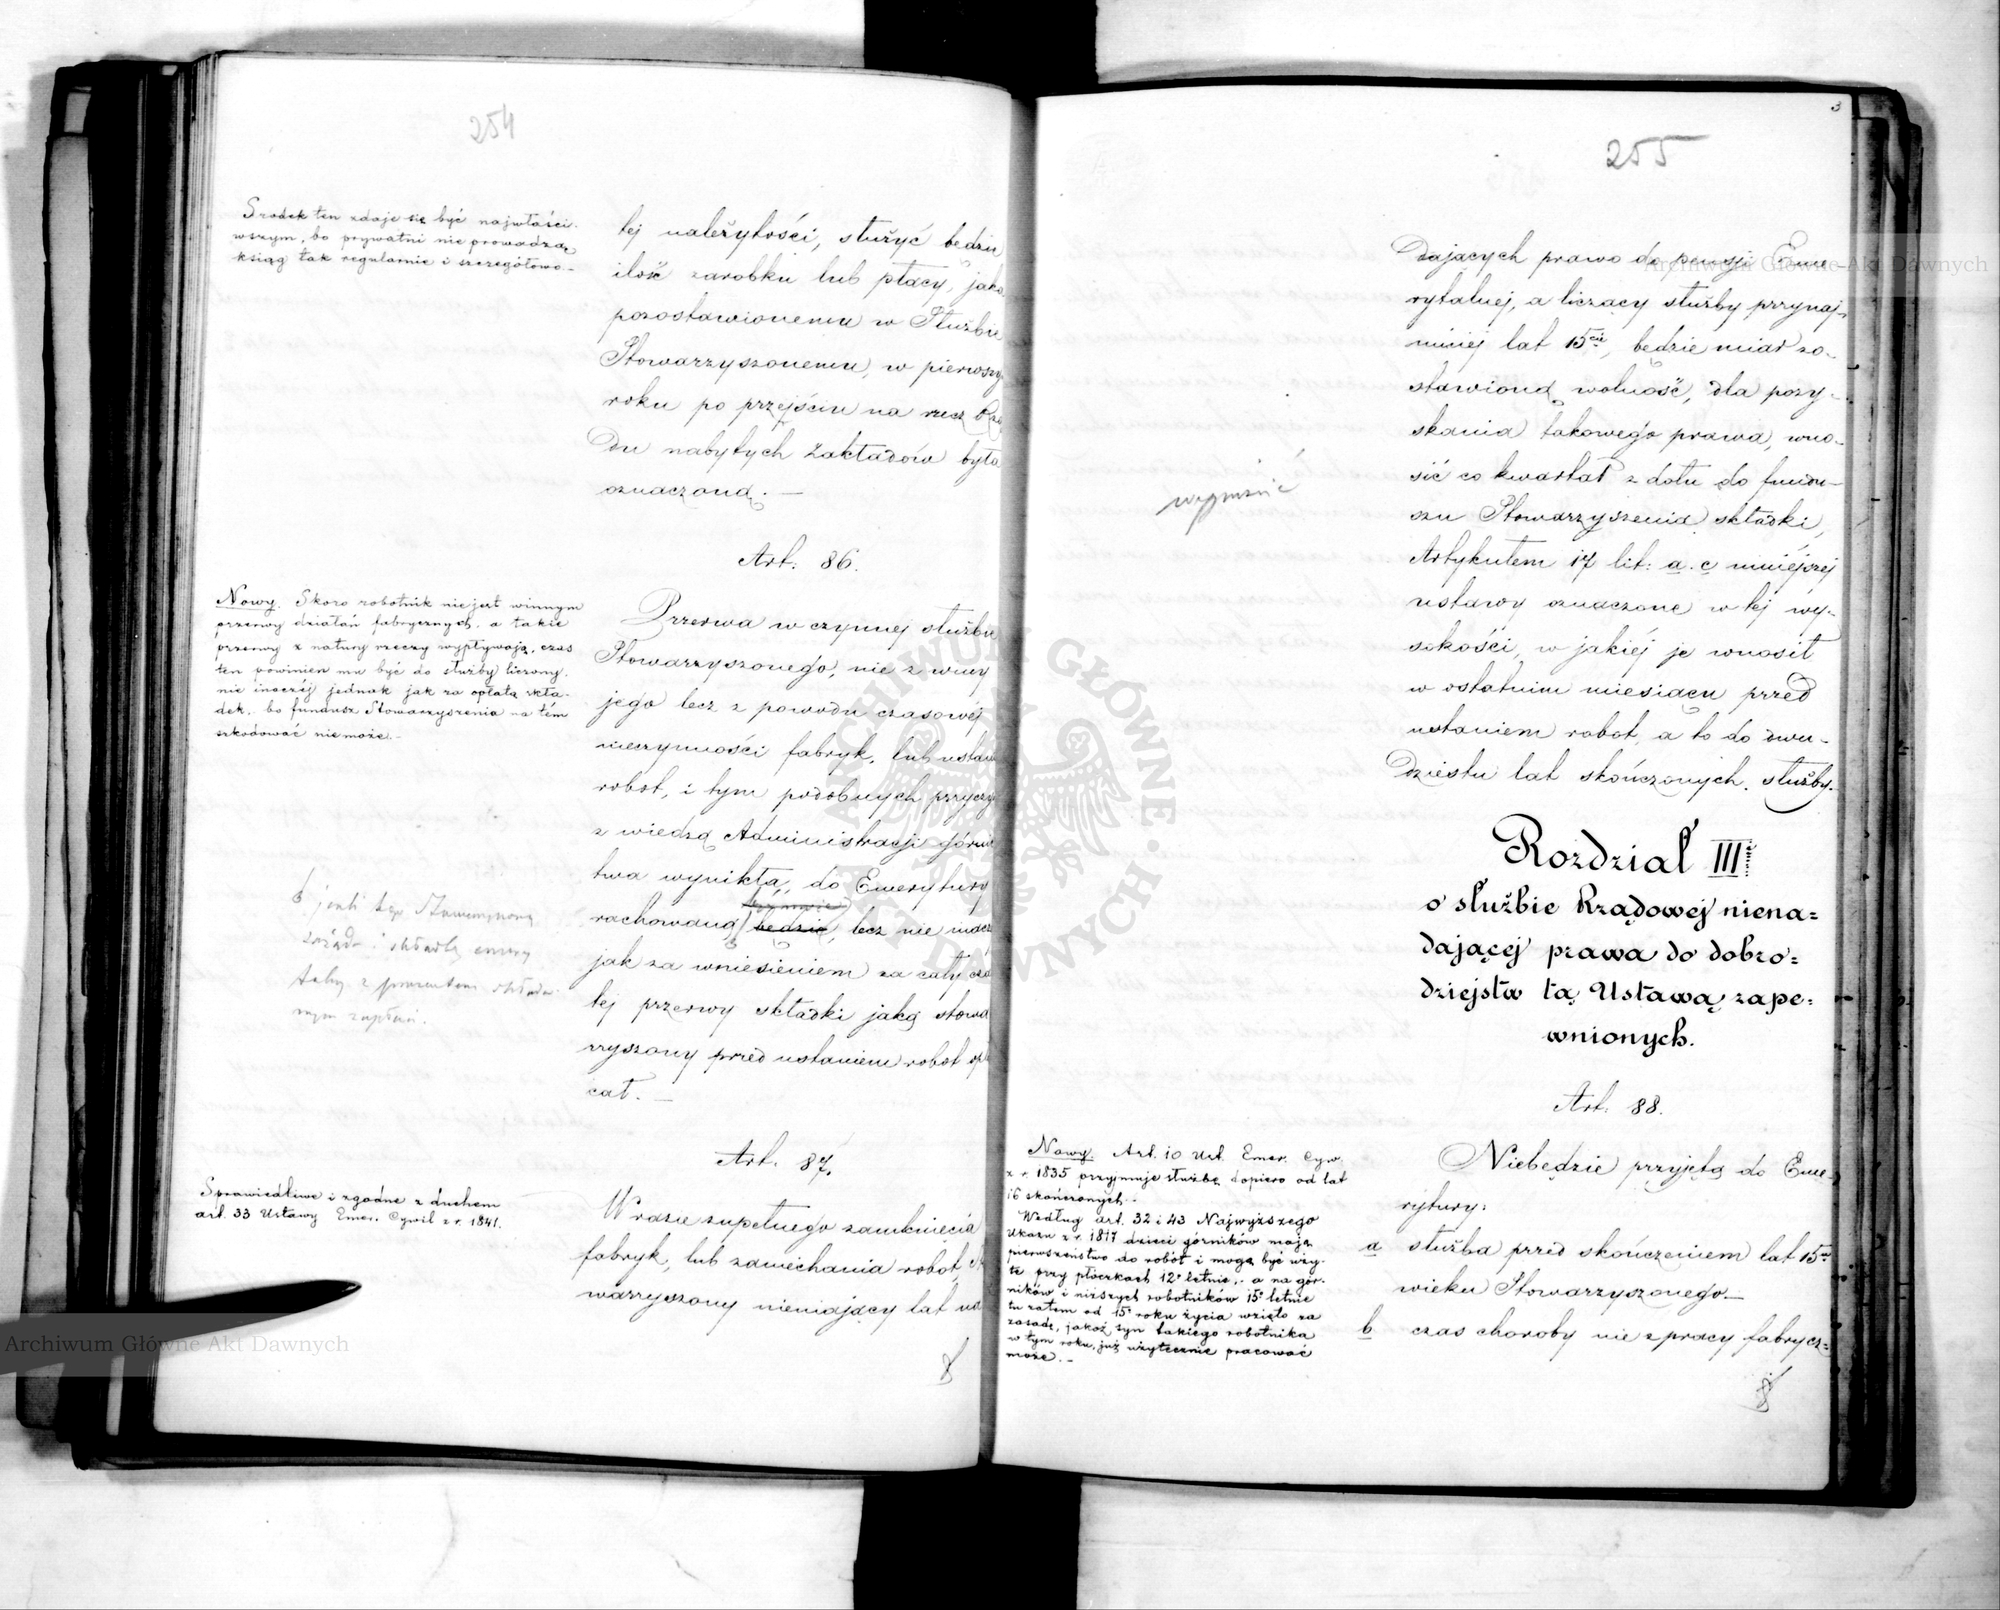 254
Środek ten zdaje się być najwłaści-
wszym, bo prywatni nie prowadzą
ksiąg tak regularnie i szczegółowo-
tej należytości, służyć będzie
ilość zarobku lub płacy, jako
pozostawionemu w Służbie
Stowarzyszonemu, w pierwszy
roku po przejściu na rzecz Rzą
du nabytych Zakładów była
oznaczoną. —
Art. 86.
Nowy. Skoro robotnik nie jest winnym
przerwy działań fabrycznych, a takie
przerwy z natury rzeczy wypływają, czas
ten powinien mu być do służby liczony.
nie inaczéj jednak jak za opłatą skła-
dek, bo fundusz Stowarzyszenia na tém
szkodować nie może.-
Przerwa w czynnej służbie
Stowarzyszonego, nie z winy
jego lecz z powodu czasowéj
nieczynności fabryk, lub ustani
robot, i tym podobnych przyczy
z wiedzą Administracji Górni
twa wynikła, do Emerytury
rachowaną będzie, lecz nie inacz
jak za wniesieniem za cały cza
tej przerwy składki jaką stowa
rzyszony przed ustaniem robot opł
cał. —
jeśli tego Stowarzyszony
zażąda i składkę emery
talną z procentem składa
nym zapłaci.
Art. 87.
Sprawiedliwe i zgodne z duchem
art. 33 Ustawy Emer. Cywil z r. 1841.
W razie zupełnego zamknięcia
fabryk, lub zaniechania robot, st
warzyszony niemający lat na
255
3
dających prawo do pensji Eme
rytalnej, a liczący służby przynaj-
mniej lat 15cie, będzie miał zo-
stawioną wolność, dla pozy-
skania takowego prawa, wno-
sić co kwartał z dołu do fundu-
szu Stowarzyszenia składki,
Artykułem 17 lit: a. c niniejszej
ustawy oznaczone w tej wy-
sokości, w jakiéj je wnosił
w ostatnim miesiącu przed
ustaniem robot, a to do dwu-
dziestu lat skończonych służby.
Rozdział III
o służbie Rządowej niena=
dającej prawa do dobro=
dziejstw tą Ustawą zape=
wnionych.
Art. 88.
Nowy. Art. 10 Ust. Emer. Cyw.
z r. 1835 przyjmuje służbę dopiero od lat
16 skończonych.-
Według art. 32 i 43 Najwyższego
Ukazu z r. 1817 dzieci górników mają
pierwszeństwo do robót i mogą być uży-
te przy płóczkach 12o letnie, - a na gór-
ników i niższych robotników 15o letnie
tu zatem od 15o roku życia wzięto za
zasadę, jakoż syn takiego robotnika
w tym roku, już użytecznie pracować
może.-
Niebędzie przyjętą do Eme-
rytury:
a służba przed skończeniem lat 15u
wieku Stowarzyszonego.—
b czas choroby nie z pracy fabrycz=
Archiwum Główne Akt Dawnych
Archiwum Główne Akt Dawnych
ARCHIWUM GŁÓWNE AKT DAWNYCH